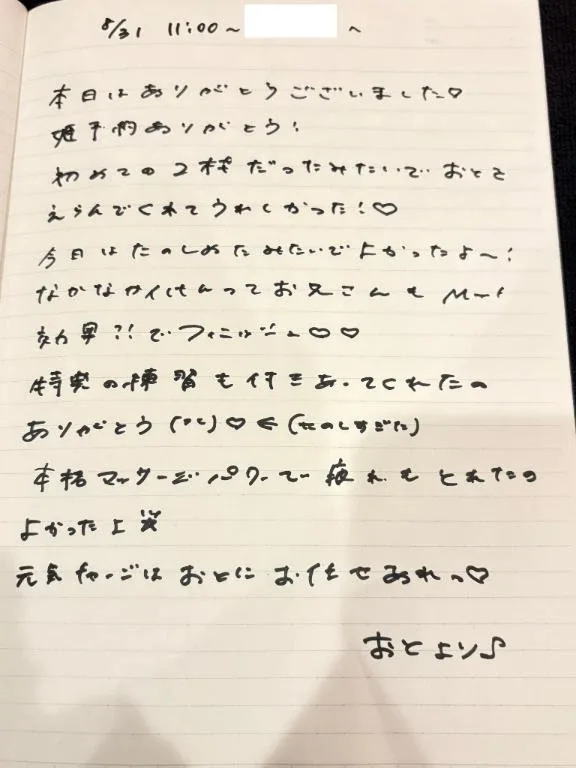 8/31 11:00～ へ
本日はありがとうございました♡
姫予約ありがとう!
初めての2枠だったみたいで おとを
えらんでくれてうれしかった!♡
今日はたのしめたみたいでよかったよ～!
なかなかイけんってお兄さんも
効果?!でフィニッシュ♡♡
特発の練習も付きあってくれたの
ありがとう ♡ ← (たのしすぎた)
本格マッサージパワーで疲れもとれたの
よかったよ
元気チャージはおとにお任せあれっ♡
おとより♪